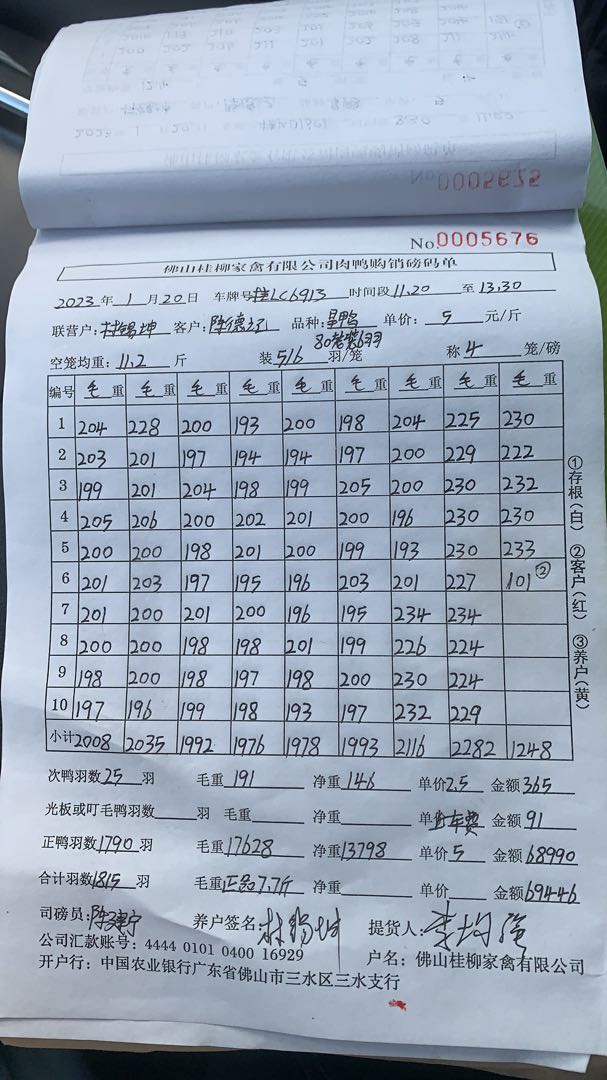 No 0005675
No.0005676
佛山桂柳家禽有限公司肉鸭购销磅码单
2023年 1 月 20 日 车牌号桂LC6913 时间段11.20 至 13.30
联营户: 林锡坤 客户: 陈德 品种: 鸭 单价: 5 元/斤
空笼均重: 11.2 斤 装 5/6 羽/笼 称 4 笼/磅
编号 毛重 毛重 毛重 毛重 毛重 毛重 毛重 毛重 毛重
1 204 228 200 193 200 198 204 225 230
2 203 201 197 194 194 197 200 229 222
3 199 201 204 198 199 205 200 230 232
4 205 206 200 202 201 200 196 230 230
5 200 200 198 201 200 199 193 230 233
6 201 203 197 195 196 203 201 227 101②
7 201 200 201 200 196 195 234 234
8 200 200 198 198 201 199 226 224
9 198 200 198 197 198 200 230 224
10 197 196 199 198 193 197 232 229
小计 2008 2035 1992 1976 1978 1993 2116 2282 1248
①存根(白) ②客户(红) ③养户(黄)
次鸭羽数 25 羽 毛重 191 净重 146 单价 2.5 金额 365
光板或叮毛鸭羽数 羽 毛重 净重 单 车费 金额 91
正鸭羽数 1790 羽 毛重 17628 净重 13798 单价 5 金额 68990
合计羽数 1815 羽 毛重 正品7.7斤 净重 单价 金额 69446
司磅员: 陈建宁 养户签名: 林锡坤 提货人: 李均强
公司汇款账号: 4444 0101 0400 16929 户名: 佛山桂柳家禽有限公司
开户行: 中国农业银行广东省佛山市三水区三水支行